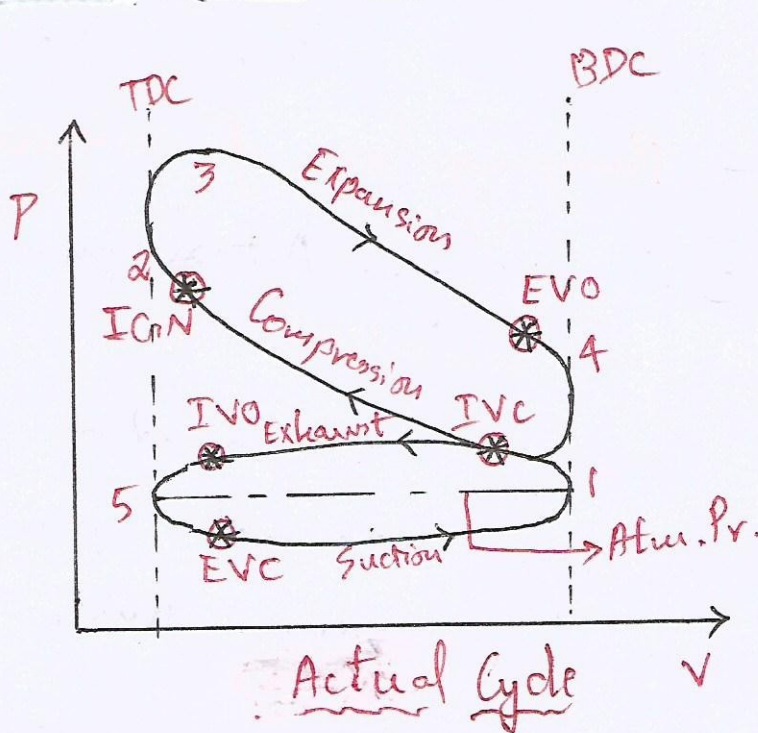 TDC
BDC
P
3
Expansion
2
IGN
EVO
Compression
4
IVO
Exhaust
IVC
5
1
EVC
Suction
Atm. Pr.
V
Actual Cycle